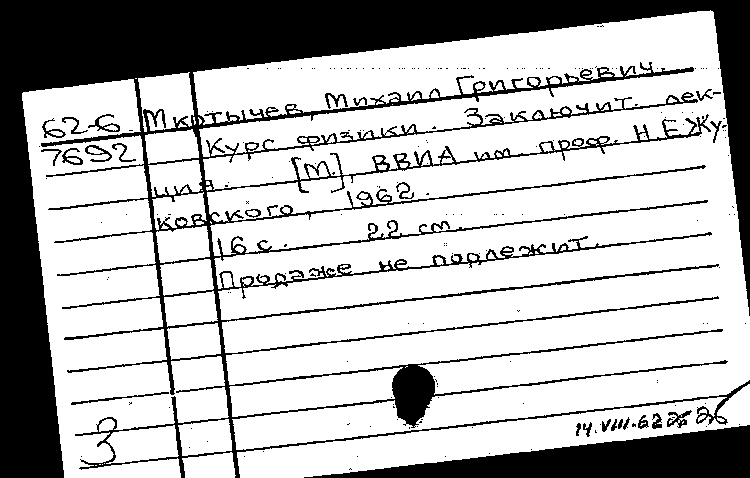 62-6 Мкртычев, Михаил Григорьевич.
7692 Курс физики. Заключит. лек-
ция. [М.], ВВИА им. проф. Н.Е.Жу-
ковского, 1962.
16 с. 22 см.
Продаже не подлежит.
3
14.VIII.62